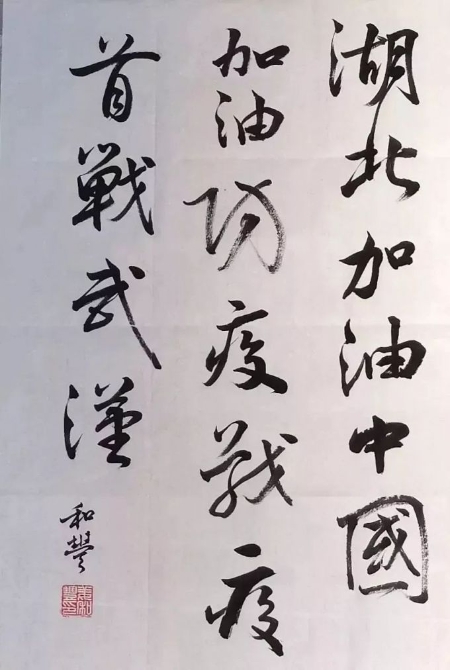 湖北加油中國
加油防疫战疫
首戰武漢
和譽